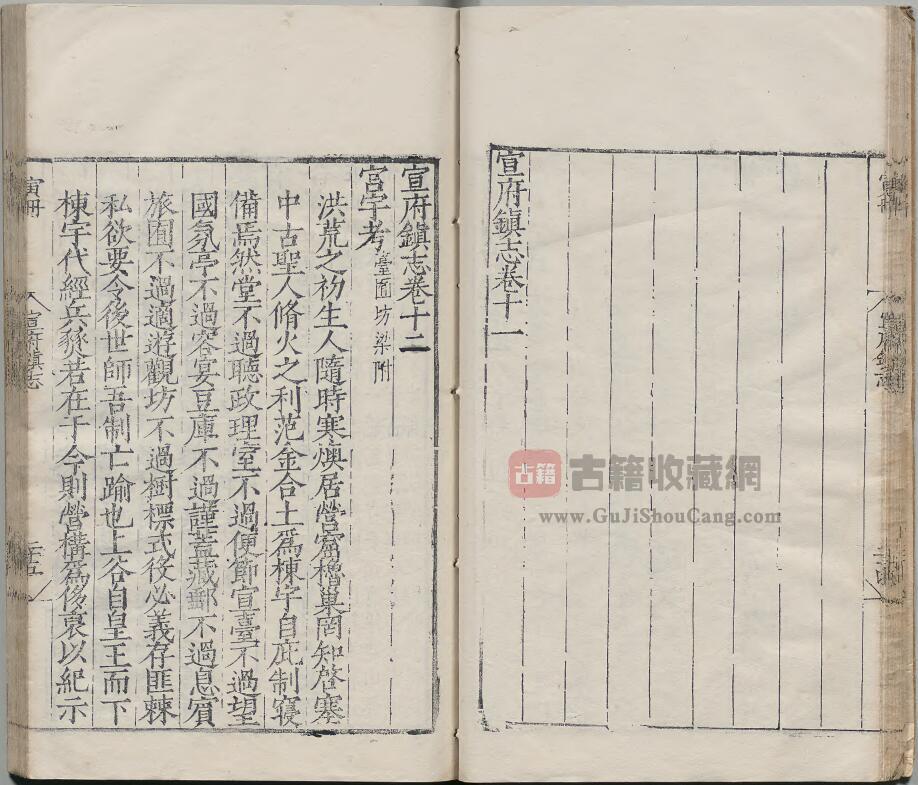 宣府鎮志卷十一
古籍 古籍收藏網
www.GuJiShouCang.com
宣府鎮志卷十二
宮宇考 臺囿坊梁附
洪荒之初生人隨時寒燠居營窟橧巢罔知啓塞
中古聖人脩火之利范金合土爲棟宇自庇制寖
備焉然堂不過聽政理室不過便節宣臺不過望
國氛亭不過容宴豆庫不過謹葢藏郵不過息賓
旅囿不過適遊觀坊不過樹標式役必義存匪棘
私欲要令後世師吾制亡踰也上谷自皇王而下
棟宇代經兵燹若在于今則營構爲侈裒以紀示
寅冊
宣府鎮志
二十五